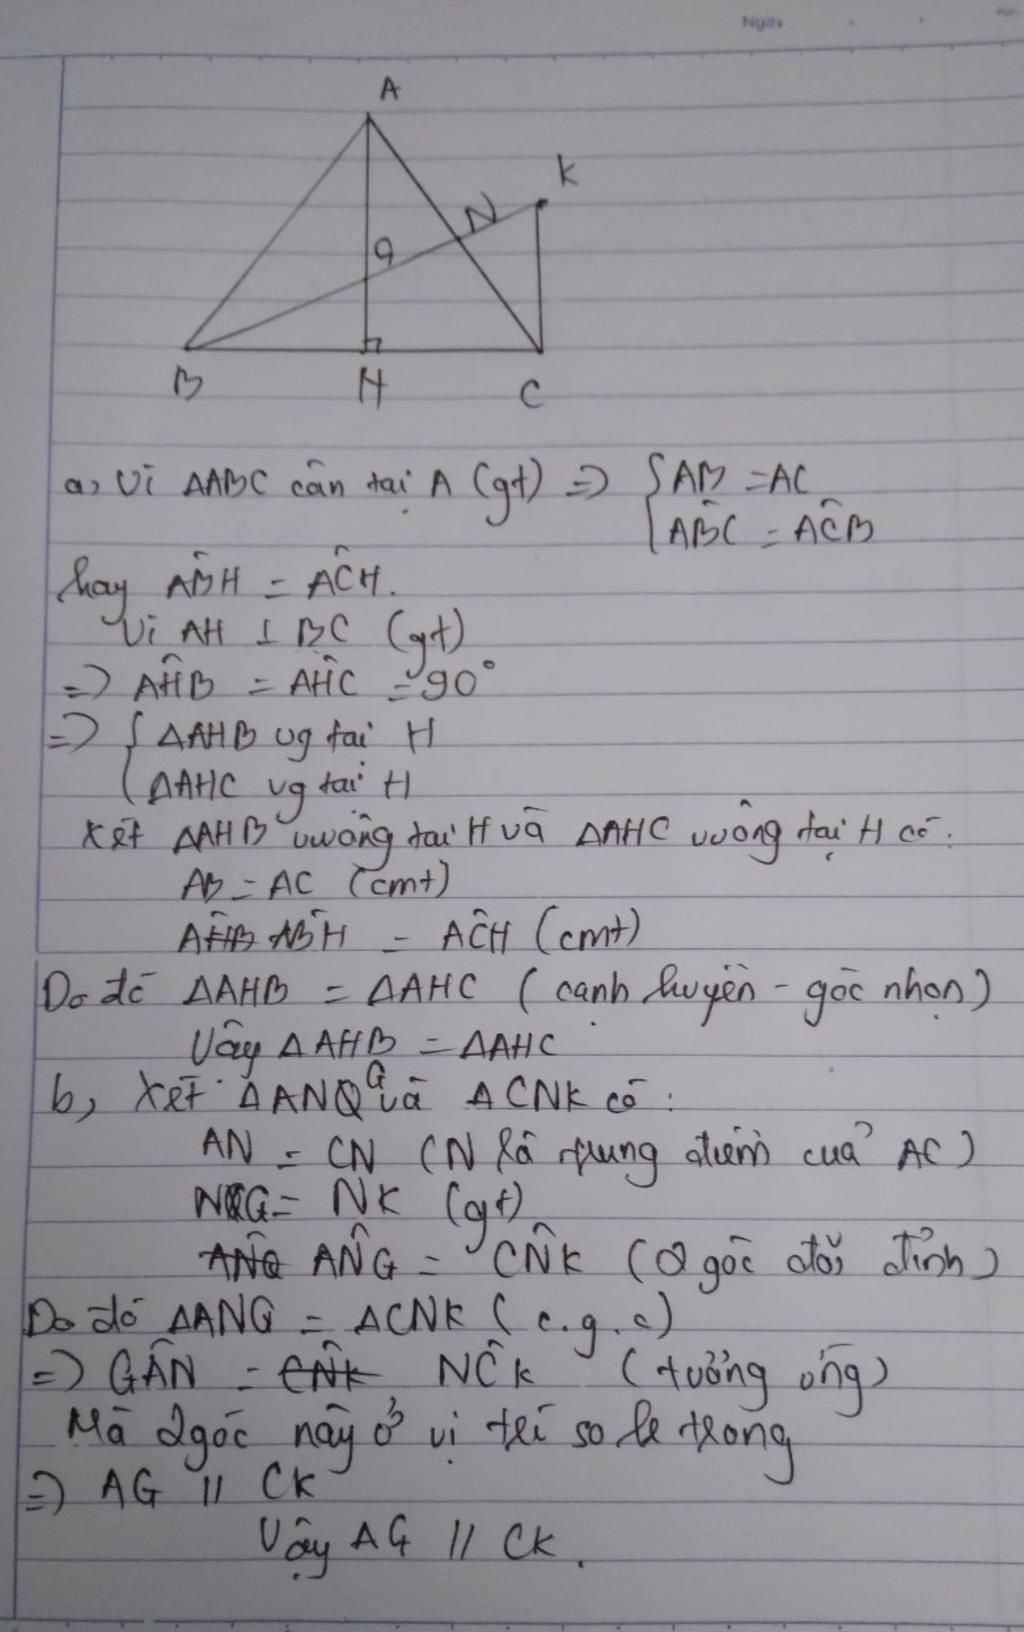 Ngày
A
K
N
G
B H C
a, Vì ΔABC cân tại A (gt) => { AB = AC
{ AB̂C = AĈB
hay AB̂H = AĈH.
Vì AH ⊥ BC (gt)
=> AĤB = AĤC = 90°
=> { ΔAHB vg tại H
{ ΔAHC vg tại H
Xét ΔAHB vuông tại H và ΔAHC vuông tại H có:
AB = AC (cmt)
AB̂H = AĈH (cmt)
Do đó ΔAHB = ΔAHC (cạnh huyền - góc nhọn)
Vậy ΔAHB = ΔAHC
b, Xét ΔANG và ΔCNK có:
AN = CN (N là trung điểm của AC)
NG = NK (gt)
AN̂G = CN̂K (2 góc đối đỉnh)
Do đó ΔANG = ΔCNK (c.g.c)
=> GÂN = NĈK (tương ứng)
Mà 2 góc này ở vị trí so le trong
=> AG // CK
Vậy AG // CK.